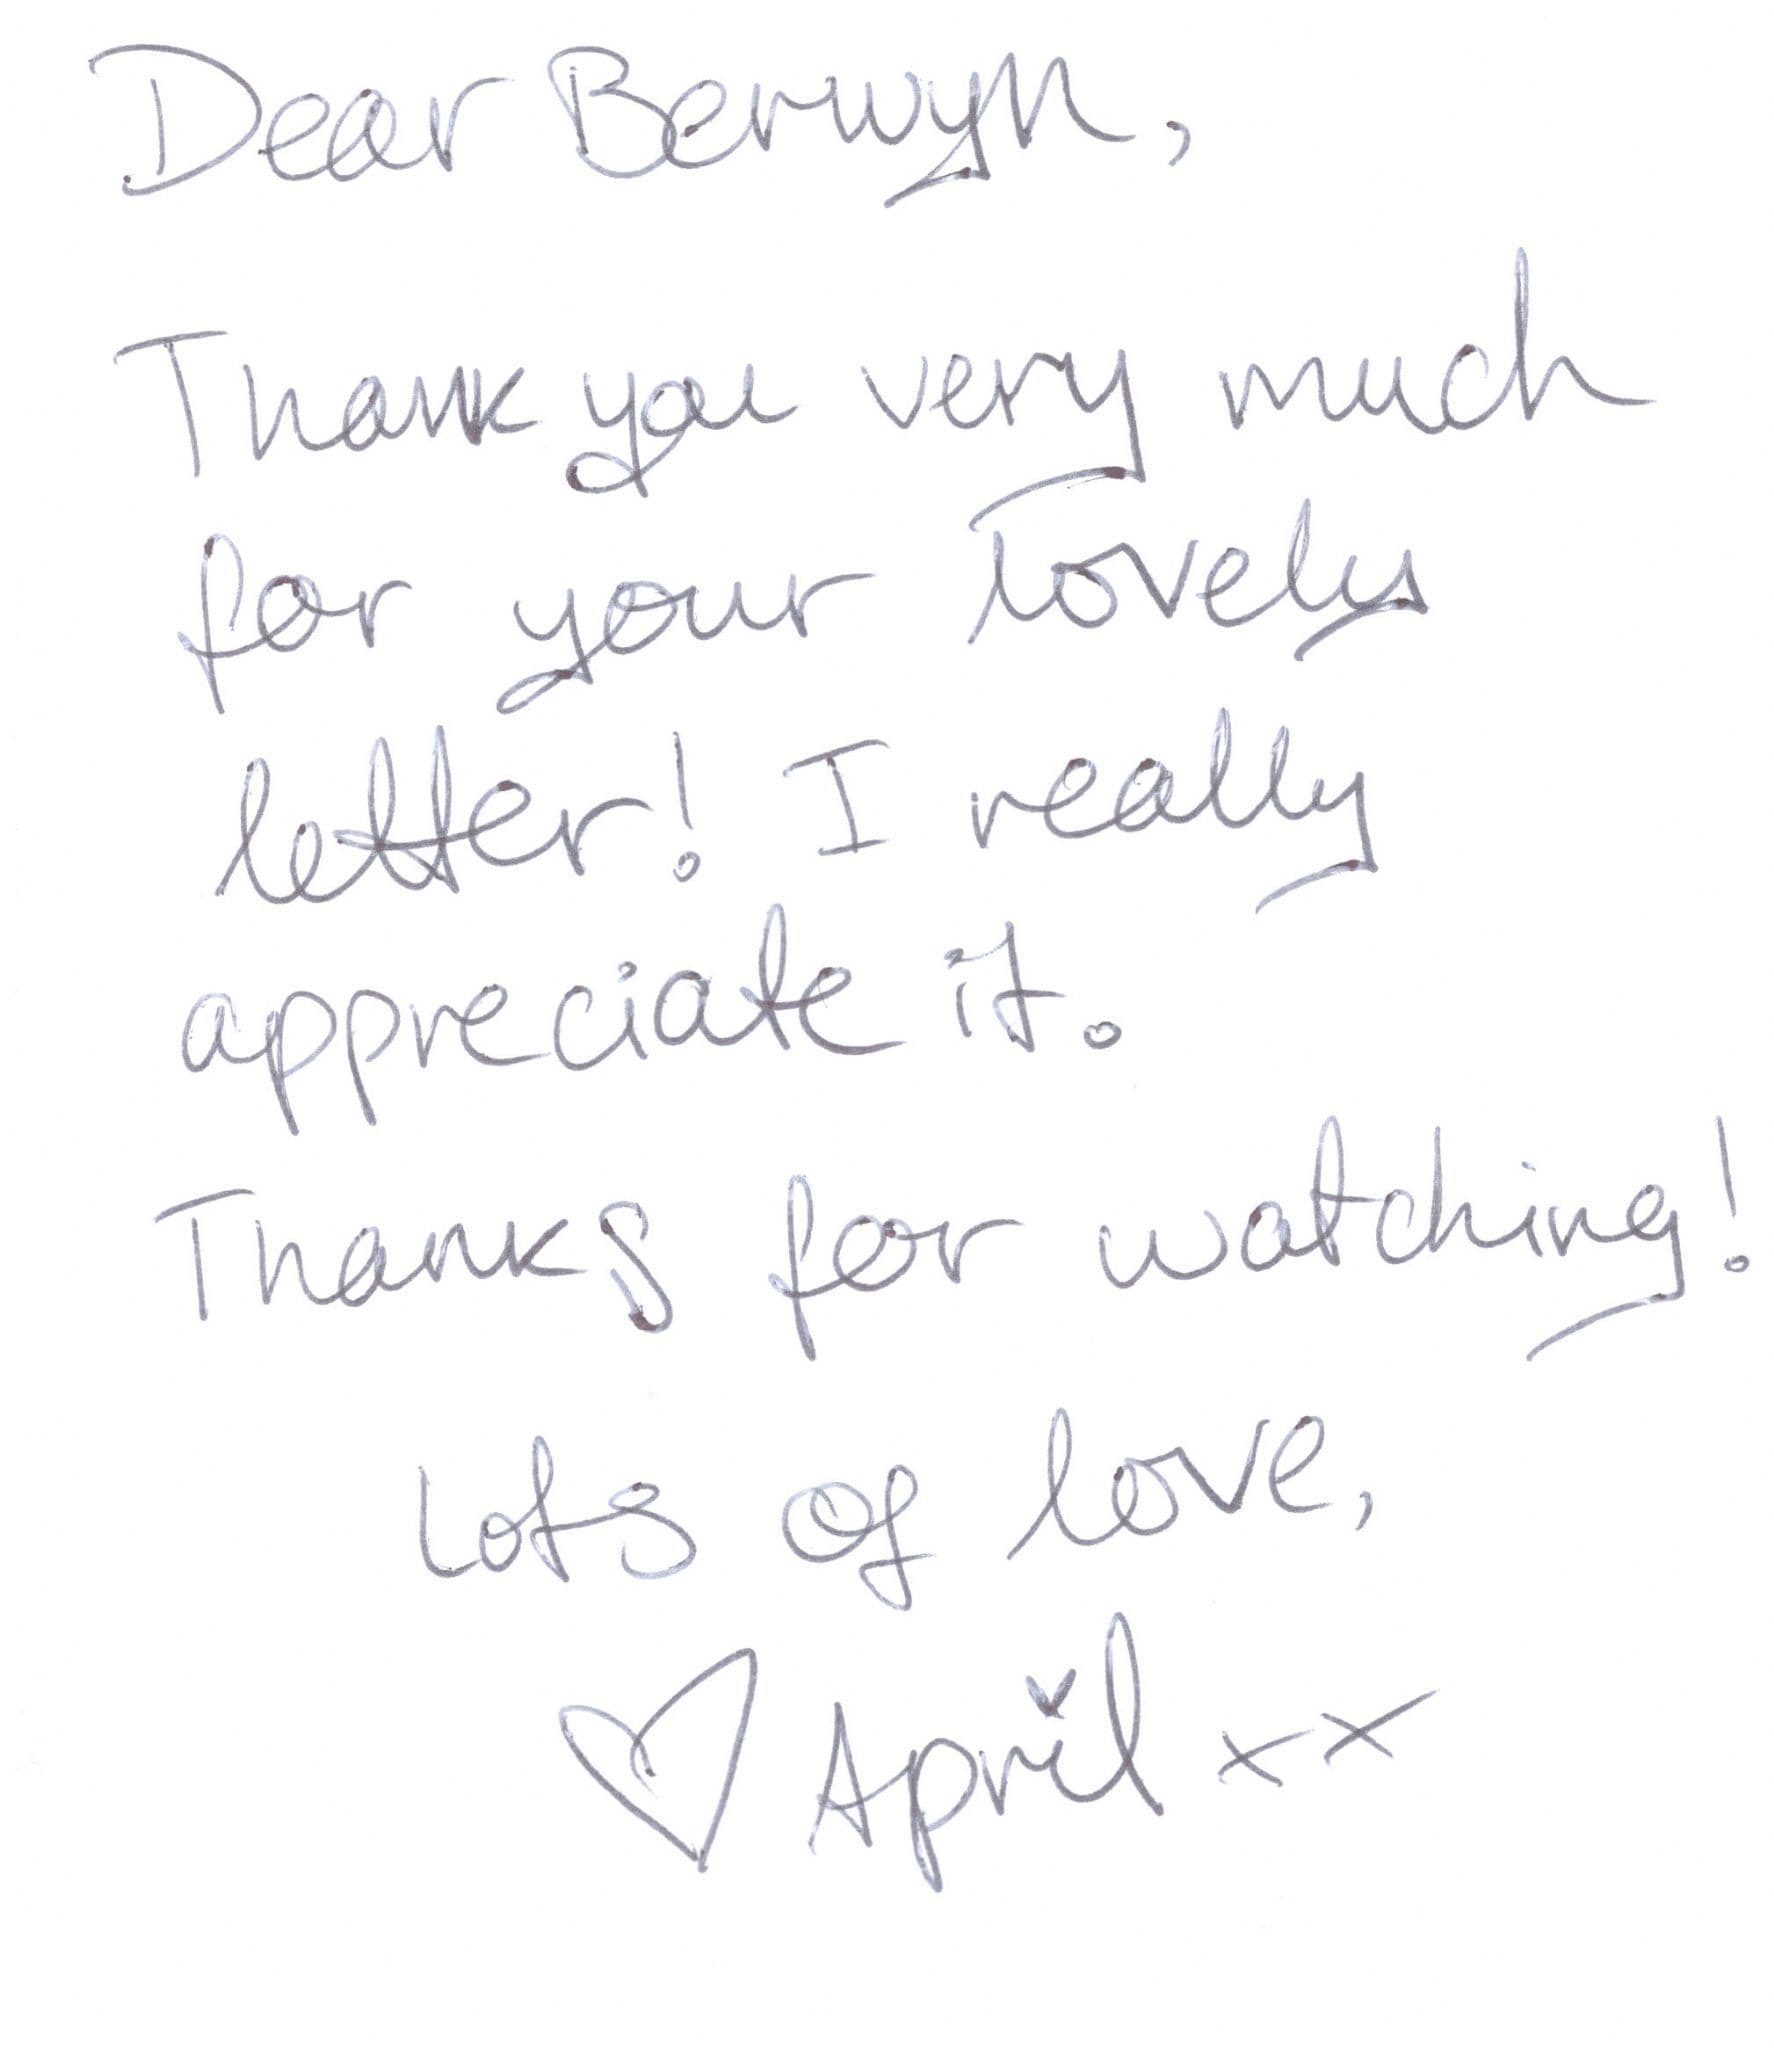 Dear Berwyn,
Thank you very much
for your lovely
letter! I really
appreciate it.
Thanks for watching!
Lots of love,
♡ April xx